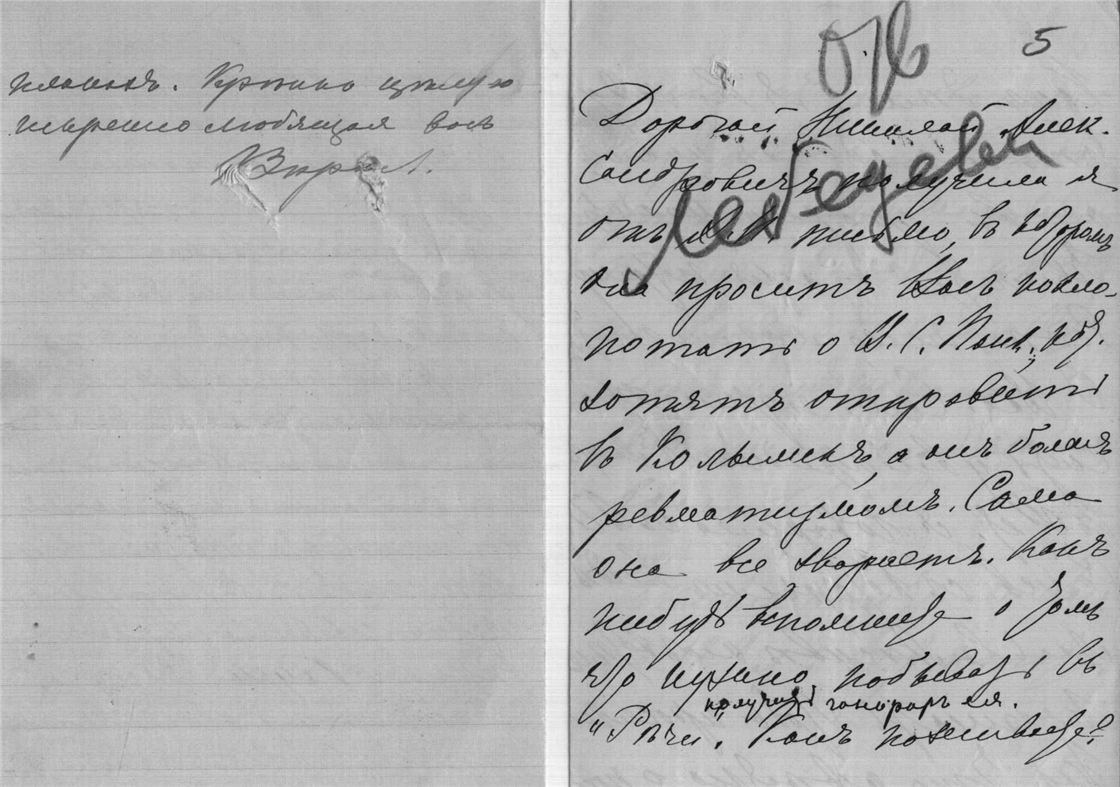 Крѣпко цѣлую
искренно любящая васъ
Вѣра Л.
5
Дорогой Николай Алек-
сандровичъ получила я
отъ письмо, въ которомъ
она проситъ Васъ похло-
потать о Панк., кот.
хотятъ отправить
въ Колымскъ, а онъ боленъ
ревматизмомъ. Сама
она все хвораетъ. Какъ
нибудь вспомните о томъ
что нужно побывать въ
получить гонораръ ея.
"Рѣчи". Какъ поживаете?